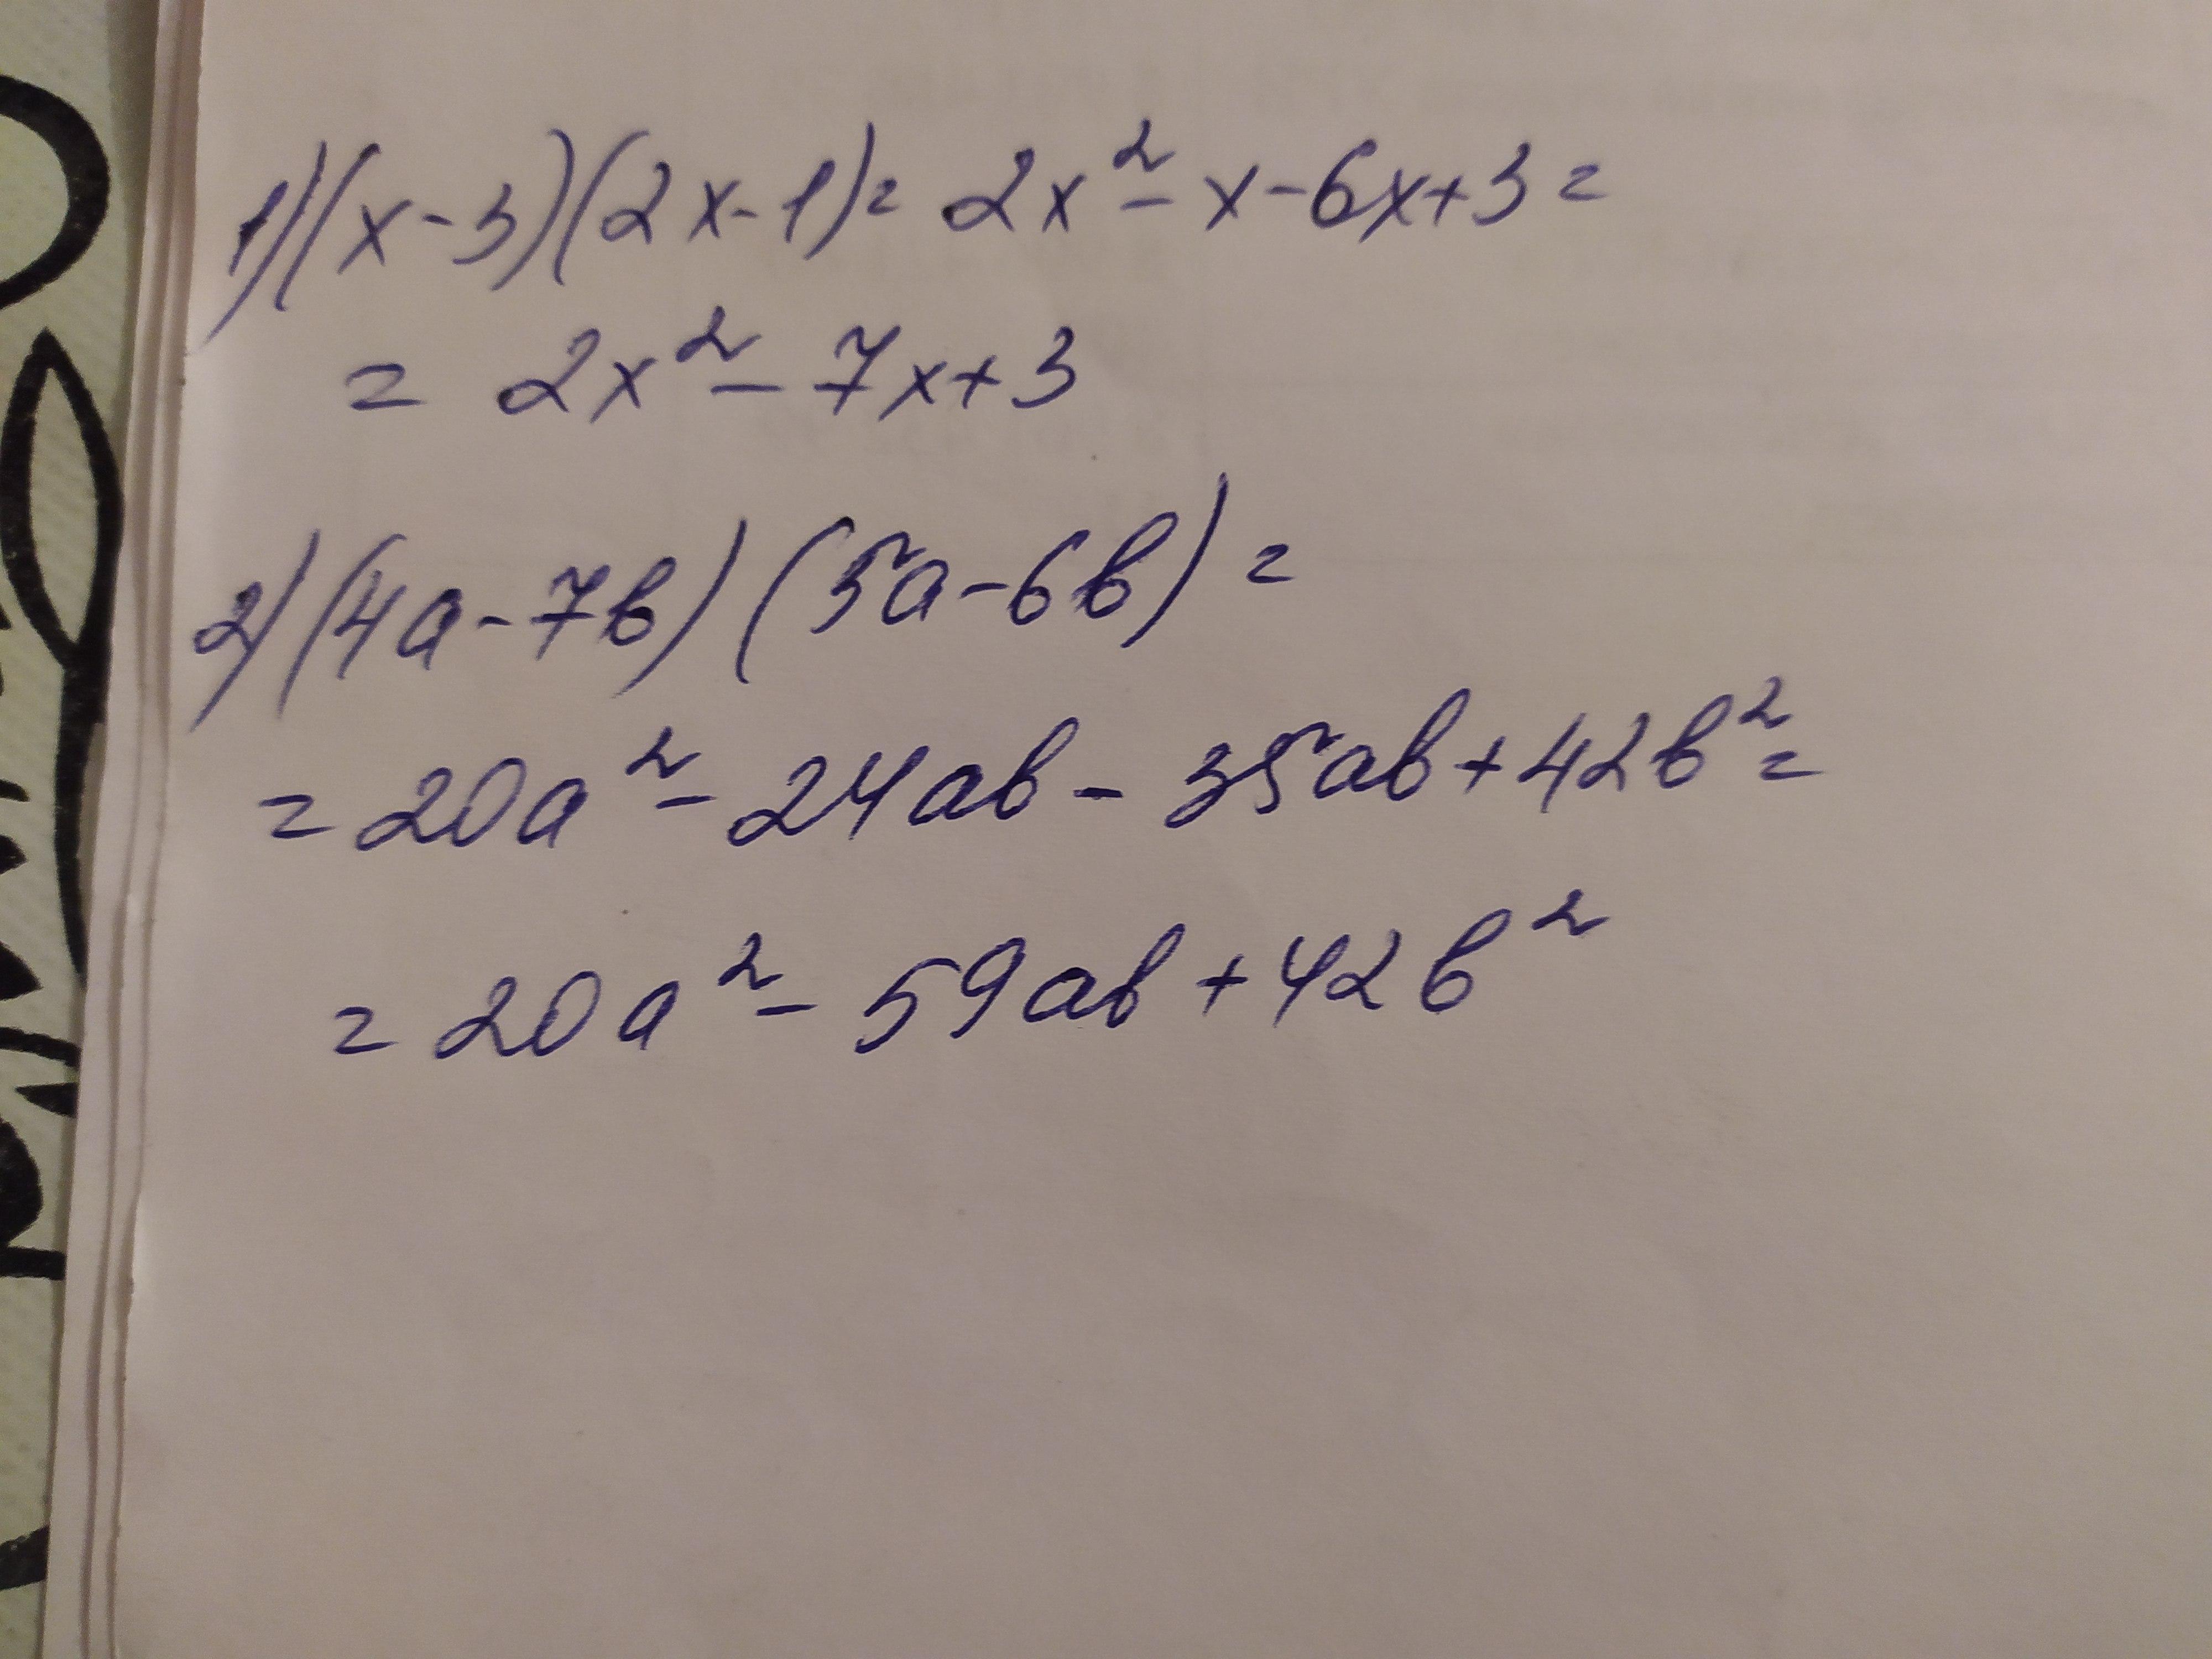 1) (x-3)(2x-1)= 2x²-x-6x+3=
= 2x²-7x+3
2) (4a-7b)(5a-6b)=
=20a²-24ab-35ab+42b²=
=20a²-59ab+42b²